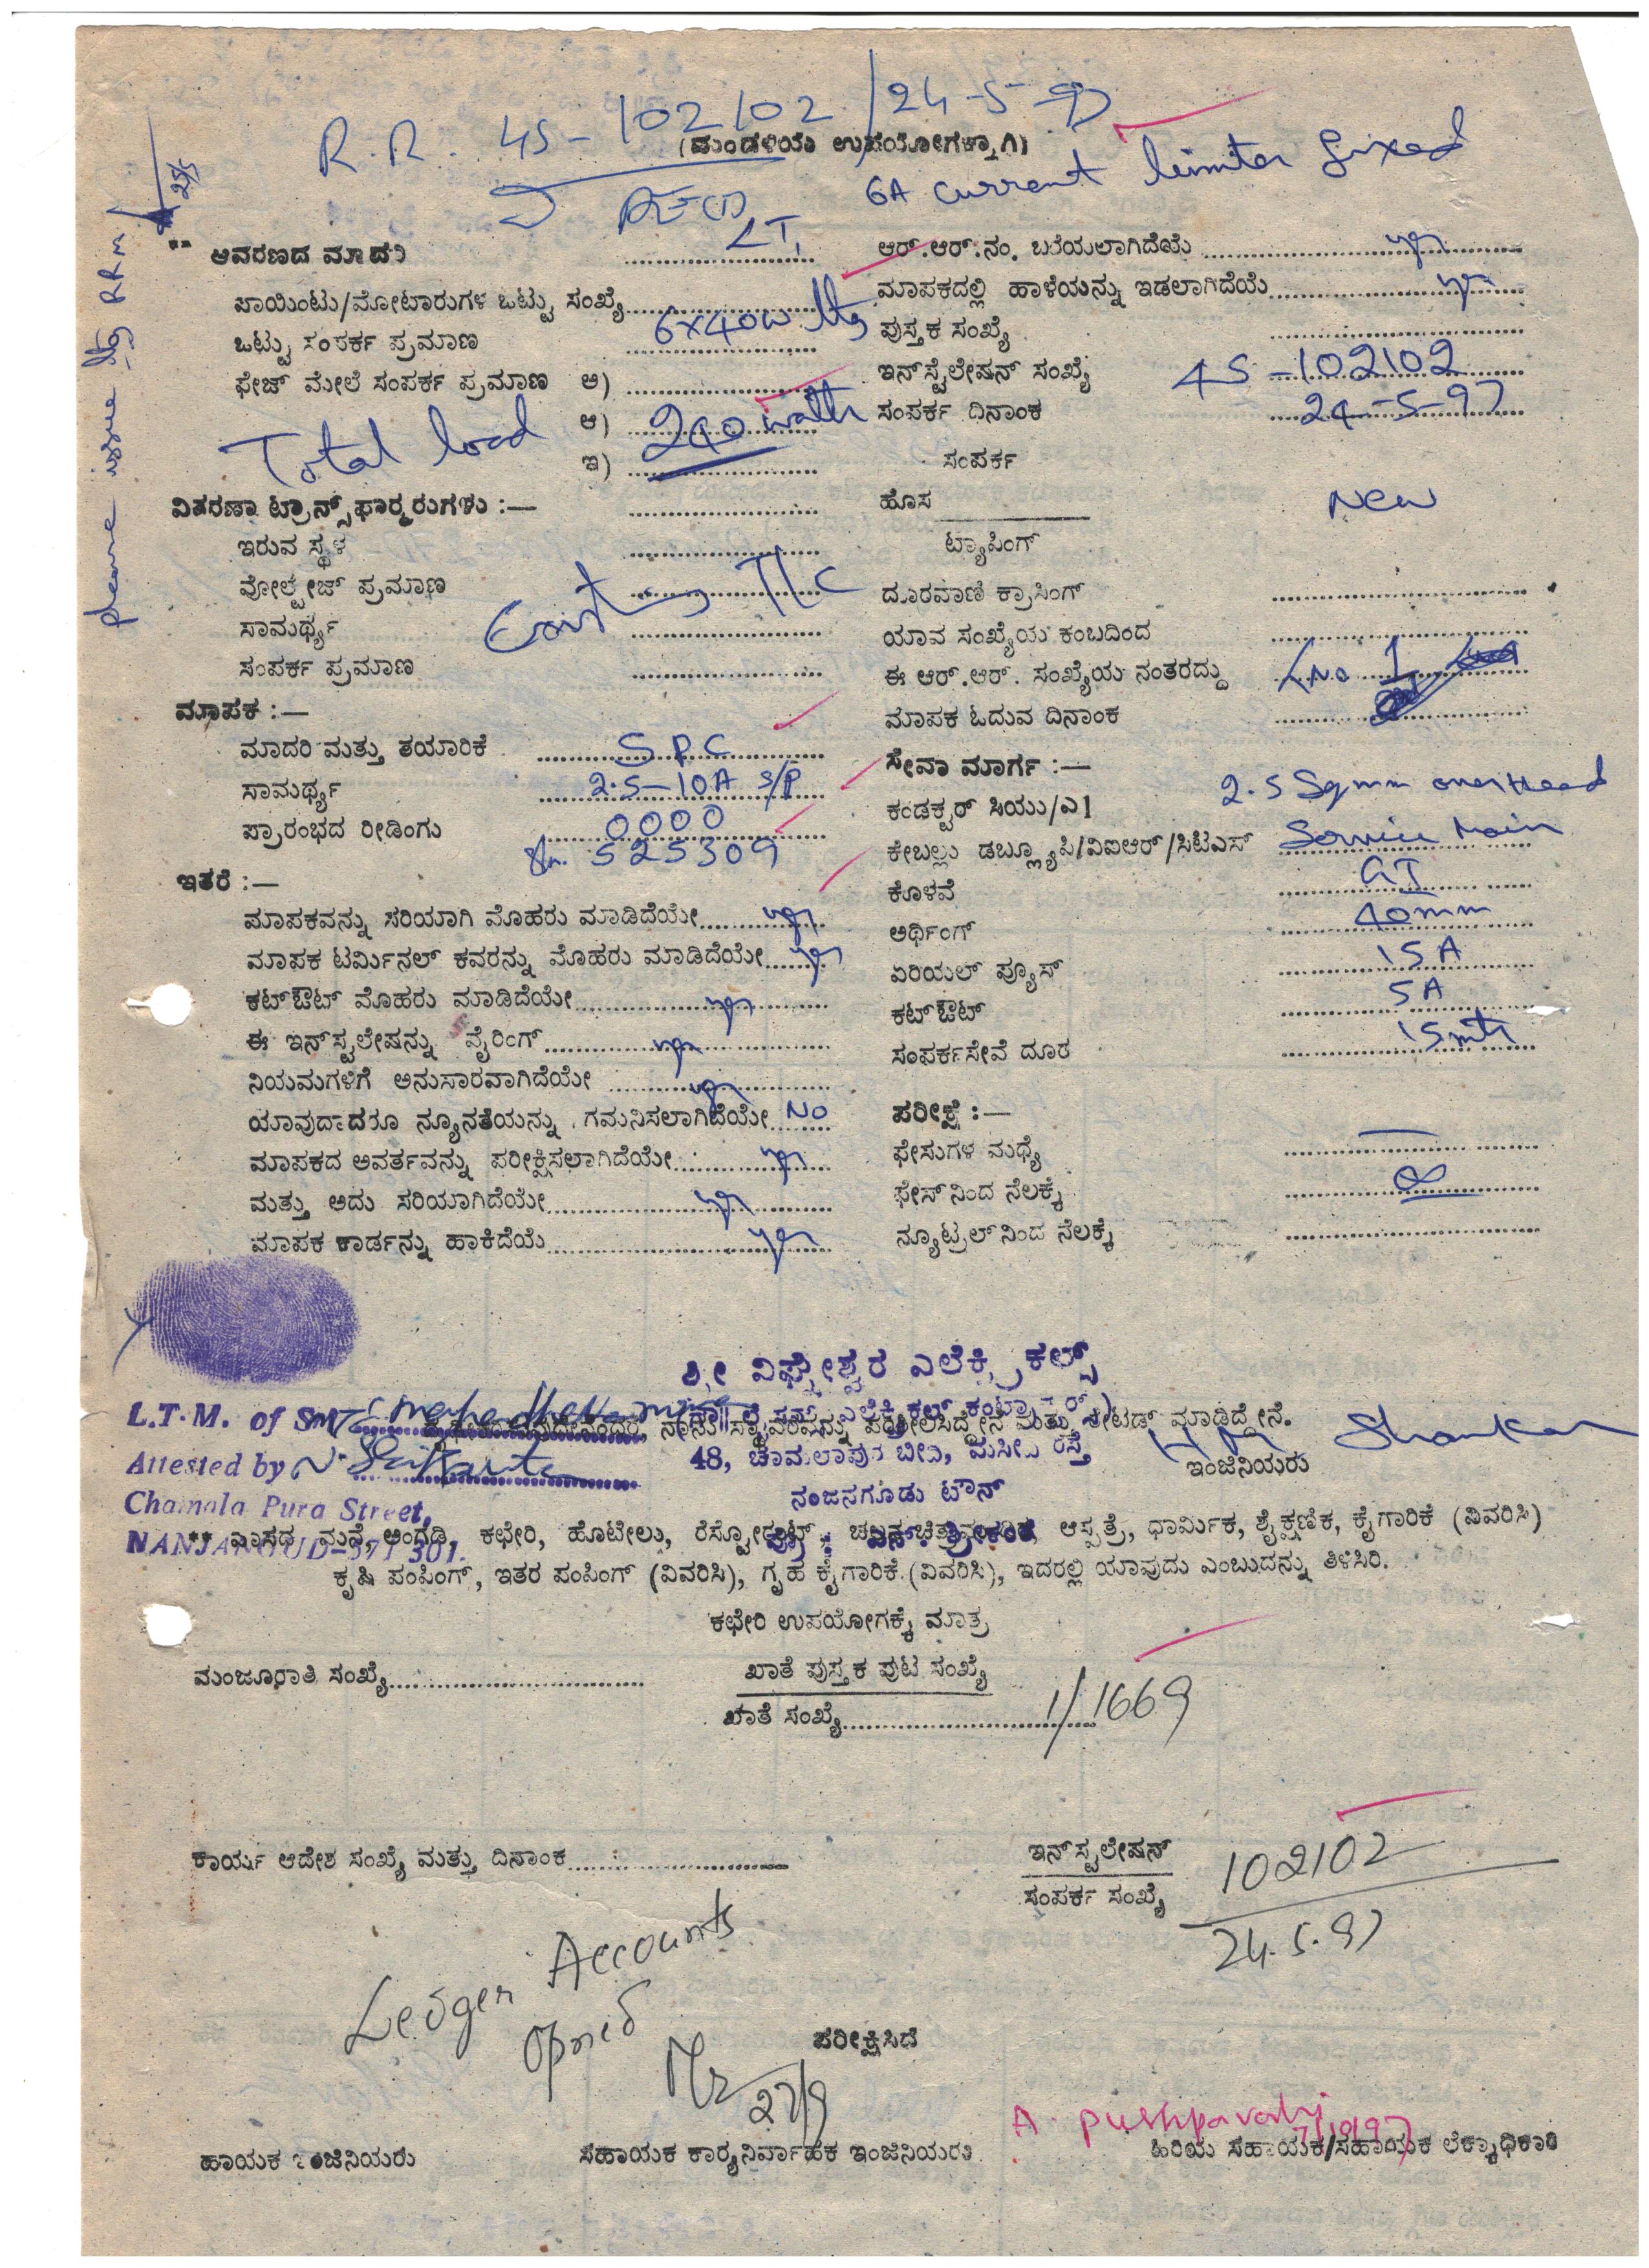 R.R. 4S-102102/24-5-97
(ಮಂಡಳಿಯ ಉಪಯೋಗಕ್ಕಾಗಿ)
6A current limiter fixed
please issue RRM
ಆವರಣದ ಮಾದರಿ LT,
ಪಾಯಿಂಟು/ಮೋಟಾರುಗಳ ಒಟ್ಟು ಸಂಖ್ಯೆ
6x40w ltg
ಒಟ್ಟು ಸಂಪರ್ಕ ಪ್ರಮಾಣ
ಫೇಜ್ ಮೇಲೆ ಸಂಪರ್ಕ ಪ್ರಮಾಣ ಅ)
Total load ಆ) 240 watts
ಇ)
ವಿತರಣಾ ಟ್ರಾನ್ಸ್‌ಫಾರ್ಮರುಗಳು :—
ಇರುವ ಸ್ಥಳ
ವೋಲ್ಟೇಜ್ ಪ್ರಮಾಣ
ಸಾಮರ್ಥ್ಯ
ಸಂಪರ್ಕ ಪ್ರಮಾಣ
ಮಾಪಕ :—
ಮಾದರಿ ಮತ್ತು ತಯಾರಿಕೆ S.P.C
ಸಾಮರ್ಥ್ಯ 2.5-10A S/P
ಪ್ರಾರಂಭದ ರೀಡಿಂಗು 0000
525309
ಇತರೆ :—
ಮಾಪಕವನ್ನು ಸರಿಯಾಗಿ ಮೊಹರು ಮಾಡಿದೆಯೇ yes
ಮಾಪಕ ಟರ್ಮಿನಲ್ ಕವರನ್ನು ಮೊಹರು ಮಾಡಿದೆಯೇ yes
ಕಟ್‌ಔಟ್ ಮೊಹರು ಮಾಡಿದೆಯೇ yes
ಈ ಇನ್‌ಸ್ಟಲೇಷನ್ನು ವೈರಿಂಗ್ yes
ನಿಯಮಗಳಿಗೆ ಅನುಸಾರವಾಗಿದೆಯೇ yes
ಯಾವುದಾದರೂ ನ್ಯೂನತೆಯನ್ನು ಗಮನಿಸಲಾಗಿದೆಯೇ NO
ಮಾಪಕದ ಅವರ್ತವನ್ನು ಪರೀಕ್ಷಿಸಲಾಗಿದೆಯೇ yes
ಮತ್ತು ಅದು ಸರಿಯಾಗಿದೆಯೇ yes
ಮಾಪಕ ಕಾರ್ಡನ್ನು ಹಾಕಿದೆಯೆ yes
ಆರ್.ಆರ್.ನಂ. ಬರೆಯಲಾಗಿದೆಯೆ yes
ಮಾಪಕದಲ್ಲಿ ಹಾಳೆಯನ್ನು ಇಡಲಾಗಿದೆಯೆ yes
ಪುಸ್ತಕ ಸಂಖ್ಯೆ
ಇನ್‌ಸ್ಟೆಲೇಷನ್ ಸಂಖ್ಯೆ 4S-102102
ಸಂಪರ್ಕ ದಿನಾಂಕ 24-5-97
ಸಂಪರ್ಕ
ಹೊಸ New
ಟ್ಯಾಪಿಂಗ್
ದೂರವಾಣಿ ಕ್ರಾಸಿಂಗ್
ಯಾವ ಸಂಖ್ಯೆಯ ಕಂಬದಿಂದ
ಈ ಆರ್.ಆರ್. ಸಂಖ್ಯೆಯ ನಂತರದ್ದು
ಮಾಪಕ ಓದುವ ದಿನಾಂಕ
ಸೇವಾ ಮಾರ್ಗ :—
ಕಂಡಕ್ಟರ್ ಸಿಯು/ಎ1 2.5 Sqmm overhead
ಕೇಬಲ್ಲು ಡಬ್ಲ್ಯೂಪಿ/ವಿಐಆರ್/ಸಿಟಿಎಸ್ Service main
ಕೊಳವೆ GI
ಅರ್ಥಿಂಗ್ 40mm
ಏರಿಯಲ್ ಫ್ಯೂಸ್ 15A
ಕಟ್‌ಔಟ್ 5A
ಸಂಪರ್ಕಸೇವೆ ದೂರ 15mts
ಪರೀಕ್ಷೆ :—
ಫೇಸುಗಳ ಮಧ್ಯೆ
ಫೇಸ್‌ನಿಂದ ನೆಲಕ್ಕೆ
ನ್ಯೂಟ್ರಲ್‌ನಿಂದ ನೆಲಕ್ಕೆ
ಶ್ರೀ ವಿಘ್ನೇಶ್ವರ ಎಲೆಕ್ಟ್ರಿಕಲ್ಸ್
L.T.M. of Smt
ಪರಿಶೀಲಿಸಿದ್ದೇನೆ ಮತ್ತು ಮಾಡಿದ್ದೇನೆ.
Attested by
48, ಚಾಮಲಾಪುರ ಬೀದಿ, ಮಸೀದಿ ರಸ್ತೆ
Shankar
ಇಂಜಿನಿಯರು
Chamala Pura Street,
ನಂಜನಗೂಡು ಟೌನ್
NANJANGUD-571 301.
** ವಾಸದ ಮನೆ, ಅಂಗಡಿ, ಕಛೇರಿ, ಹೊಟೇಲು, ಆಸ್ಪತ್ರೆ, ಧಾರ್ಮಿಕ, ಶೈಕ್ಷಣಿಕ, ಕೈಗಾರಿಕೆ (ವಿವರಿಸಿ)
ಕೃಷಿ ಪಂಪಿಂಗ್, ಇತರ ಪಂಪಿಂಗ್ (ವಿವರಿಸಿ), ಗೃಹ ಕೈಗಾರಿಕೆ (ವಿವರಿಸಿ), ಇದರಲ್ಲಿ ಯಾವುದು ಎಂಬುದನ್ನು ತಿಳಿಸಿರಿ.
ಕಛೇರಿ ಉಪಯೋಗಕ್ಕೆ ಮಾತ್ರ
ಮಂಜೂರಾತಿ ಸಂಖ್ಯೆ
ಖಾತೆ ಪುಸ್ತಕ ಪುಟ ಸಂಖ್ಯೆ
ಖಾತೆ ಸಂಖ್ಯೆ 1/1669
ಕಾರ್ಯ ಆದೇಶ ಸಂಖ್ಯೆ ಮತ್ತು ದಿನಾಂಕ
ಇನ್‌ಸ್ಟಲೇಷನ್
ಸಂಪರ್ಕ ಸಂಖ್ಯೆ
102102
24.5.97
Ledger Accounts
opned
ಪರೀಕ್ಷಿಸಿದೆ
27/9
A. pushpavathi
7/10/97
ಹಾಯಕ ಇಂಜಿನಿಯರು
ಸಹಾಯಕ ಕಾರ್ಯನಿರ್ವಾಹಕ ಇಂಜಿನಿಯರು
ಹಿರಿಯ ಸಹಾಯಕ/ಸಹಾಯಕ ಲೆಕ್ಕಾಧಿಕಾರಿ